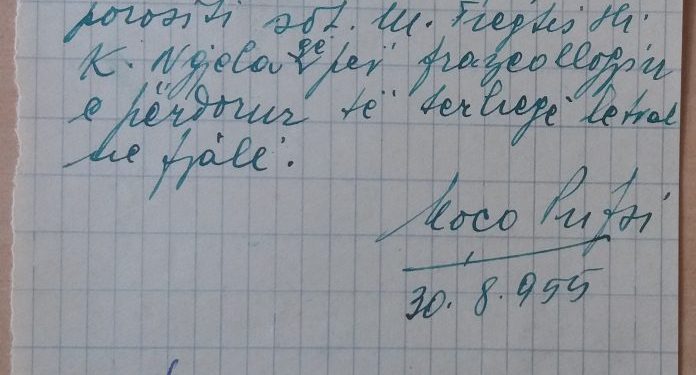 porositi sot. M. Fiegtis Hi.
K. Ngjela që për frazeollogjin
e përdorur të terheqë letrat
ne fjalë.
Koco Prifti
30.8.955